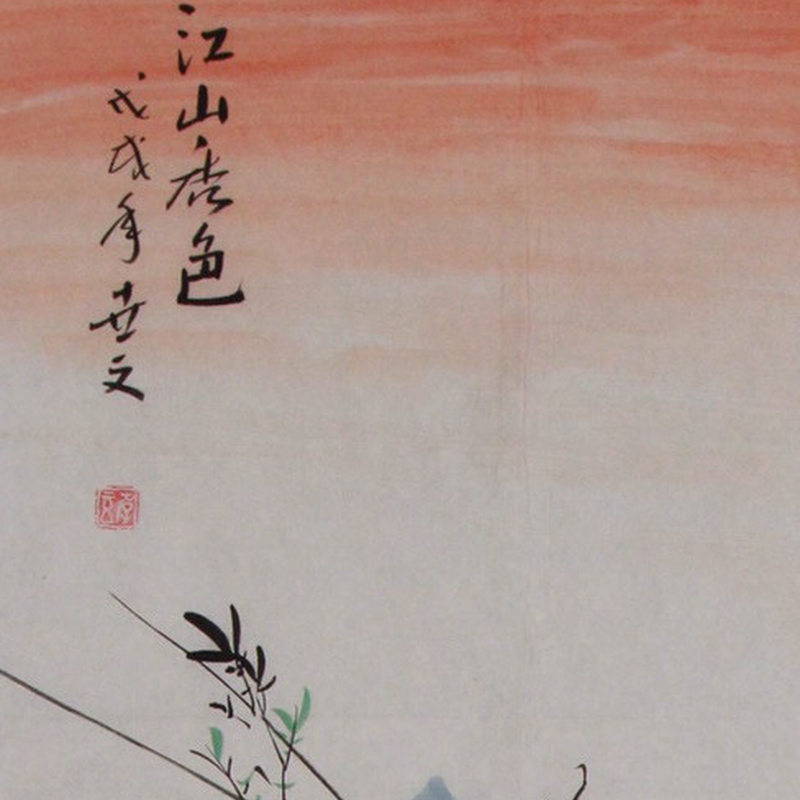 江山秀色
戊戌年 世文